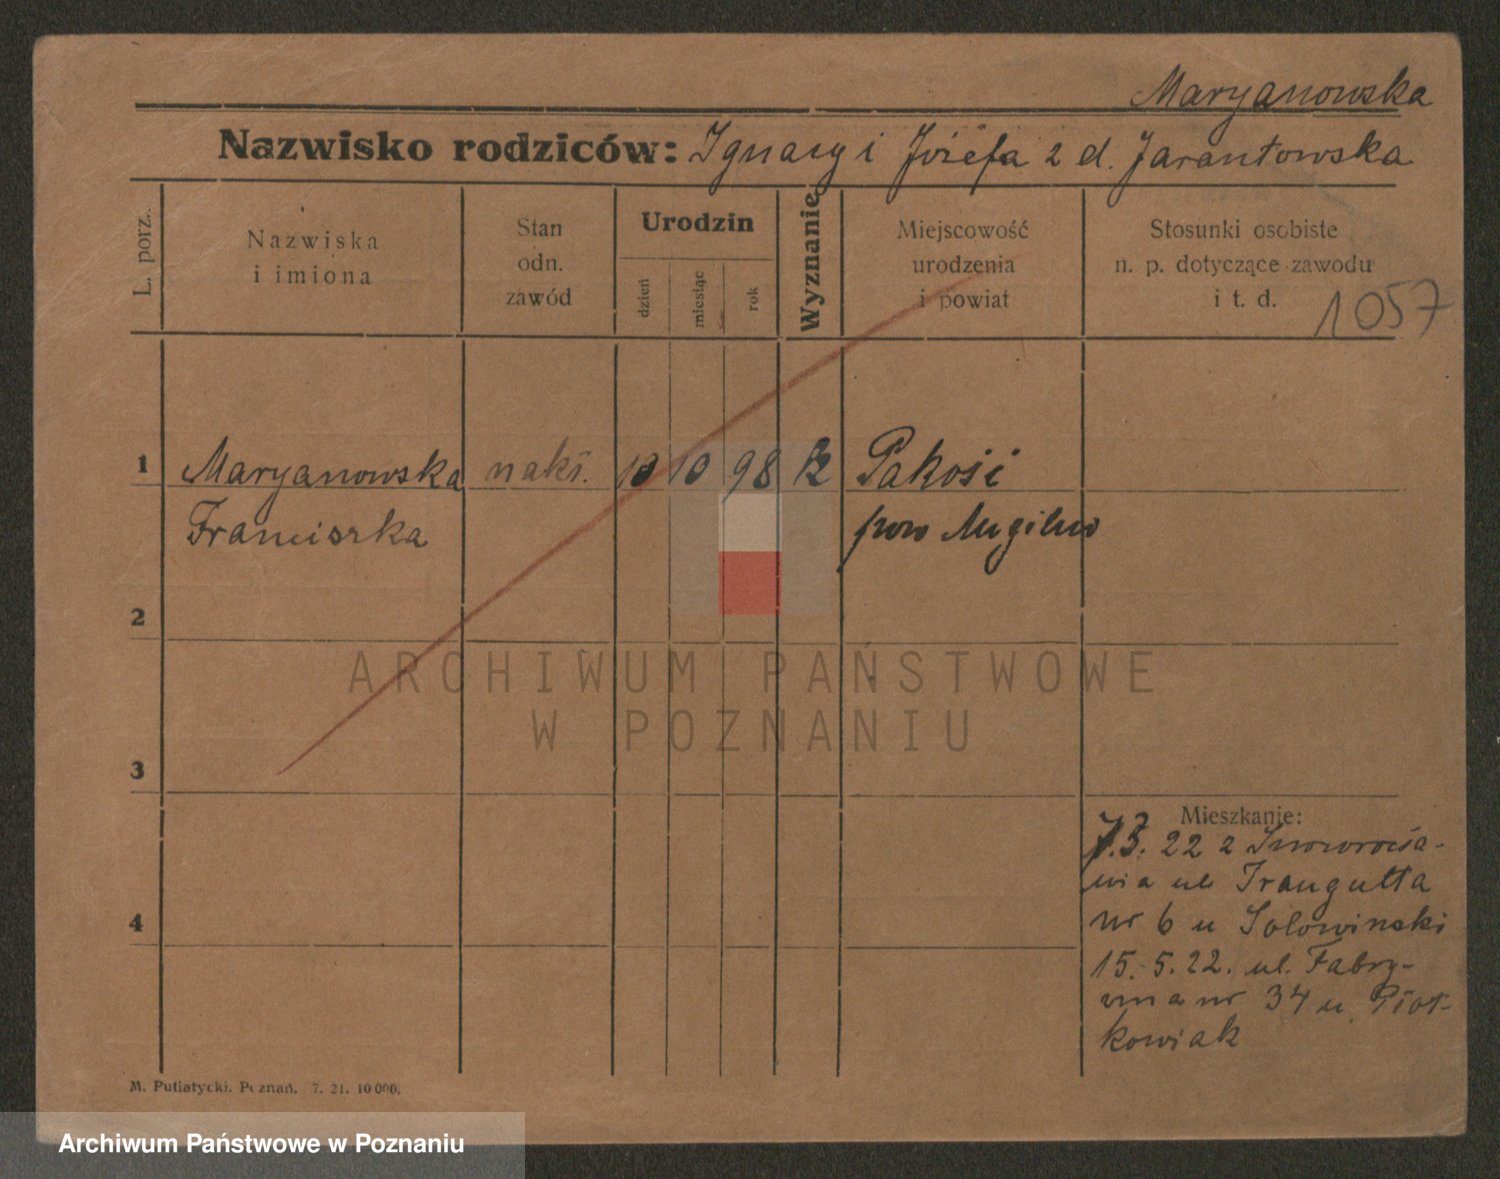 Maryanowska
Nazwisko rodziców: Ignacy i Józefa z d. Jarantowska
L. porz.
Nazwiska
i imiona
Stan
odn.
zawód
Urodzin
dzień
miesiąc
rok
Wyznanie
Miejscowość
urodzenia
i powiat
Stosunki osobiste
n. p. dotyczące zawodu
i t. d.
1057
1 Maryanowska 10 10 98 k Pakość
Franciszka pow Mogilno
2
3
4
Mieszkanie:
7.3.22 z Inowrocła-
wia ul Traugutta
nr 6 u Solowinski
15.5.22. ul. Fabry-
czna nr 34 u Piot-
kowiak
M. Putiatycki. Poznań. 7. 21. 10000.
ARCHIWUM PAŃSTWOWE
W POZNANIU
Archiwum Państwowe w Poznaniu